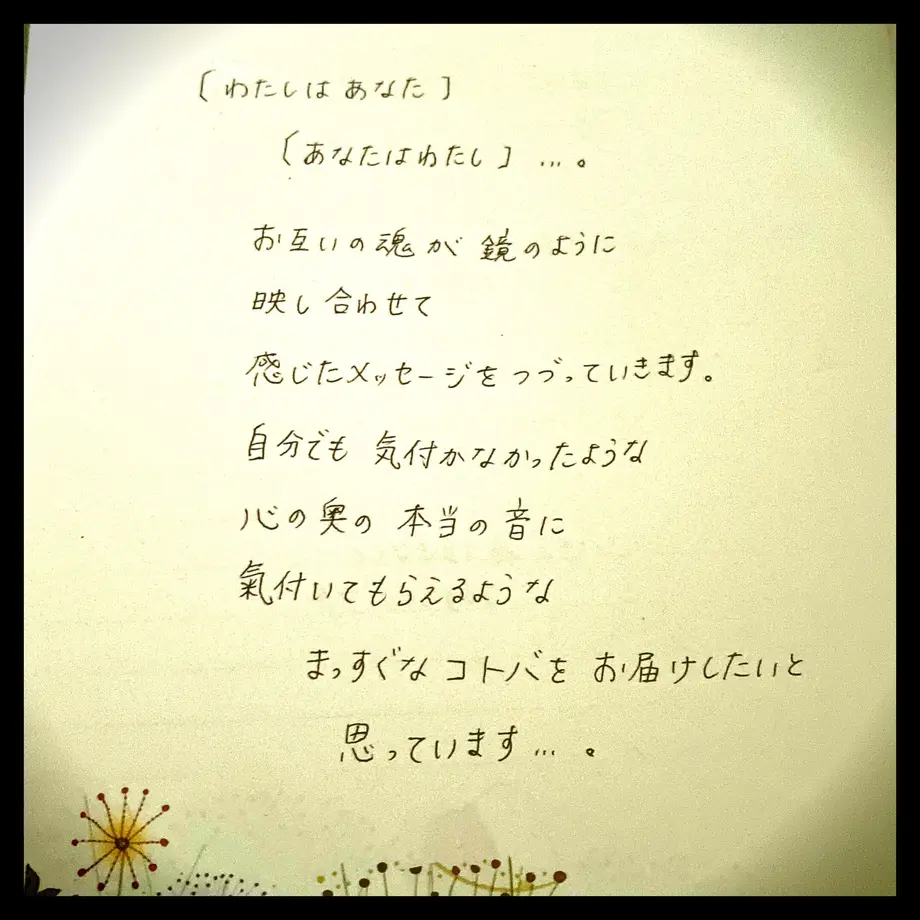 〔わたしは あなた〕
〔あなたはわたし〕…。
お互いの魂が 鏡のように
映し合わせて
感じたメッセージをつづっていきます。
自分でも 気付かなかったような
心の奥の 本当の音に
氣付いてもらえるような
まっすぐな コトバを お届けしたいと
思っています…。